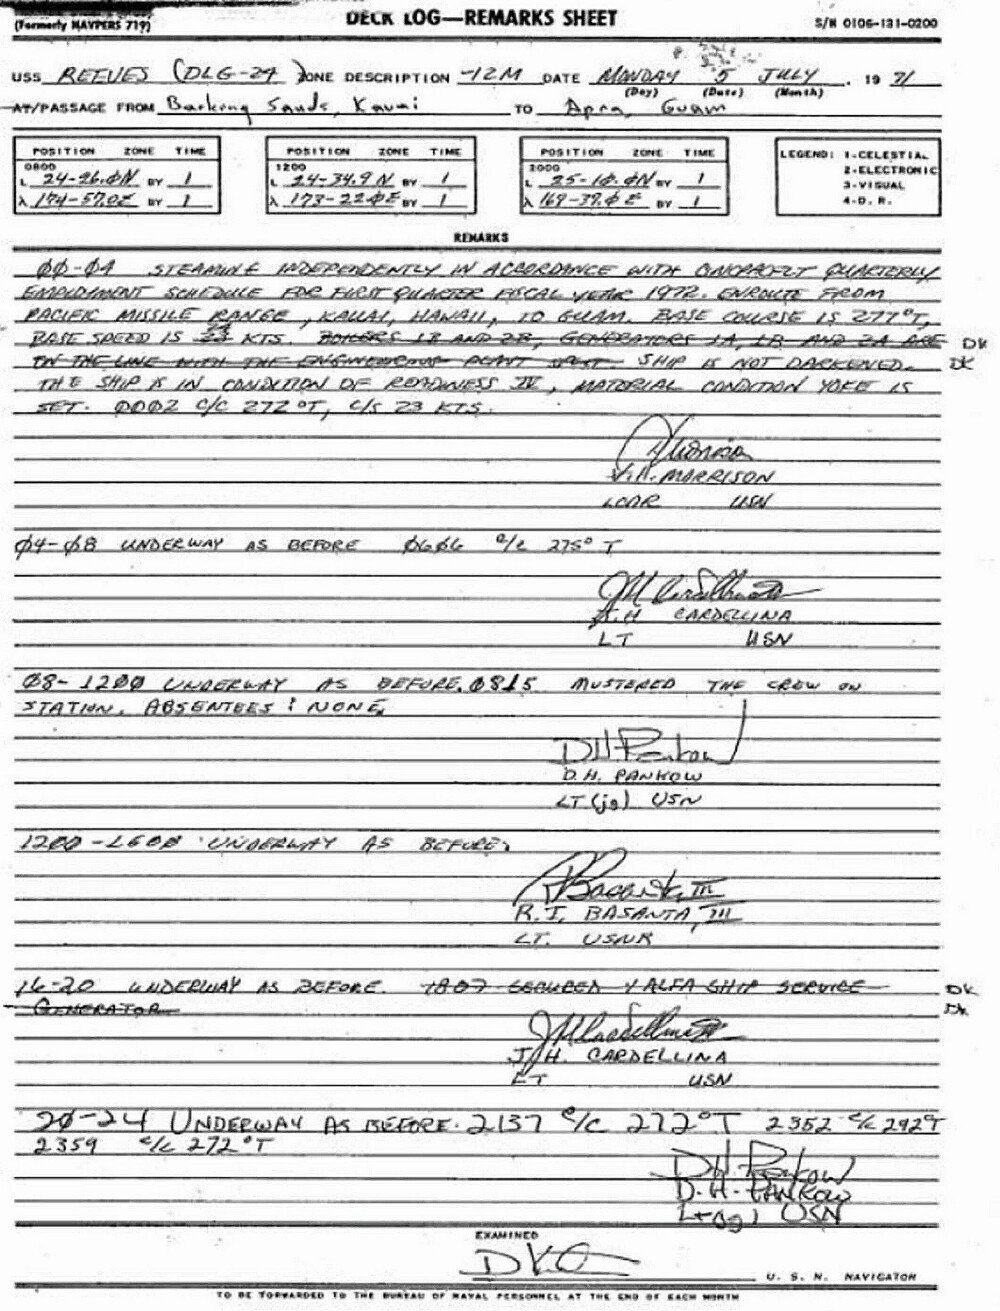 DECK LOG—REMARKS SHEET
(Formerly NAVPERS 719) S/N 0106-131-0200
USS REEVES (DLG-24) ZONE DESCRIPTION -12M DATE MONDAY 5 JULY, 19 71
(Day) (Date) (Month)
AT/PASSAGE FROM Barking Sands, Kauai TO Apra, Guam
POSITION ZONE TIME POSITION ZONE TIME POSITION ZONE TIME LEGEND: 1-CELESTIAL
0800 1200 2000 2-ELECTRONIC
L 24-26.0N BY 1 L 24-34.9N BY 1 L 25-10.0N BY 1 3-VISUAL
λ 174-57.0E BY 1 λ 173-22.0E BY 1 λ 169-39.0E BY 1 4-D. R.
REMARKS
00-04 STEAMING INDEPENDENTLY IN ACCORDANCE WITH CINCPACFLT QUARTERLY
EMPLOYMENT SCHEDULE FOR FIRST QUARTER FISCAL YEAR 1972. ENROUTE FROM
PACIFIC MISSILE RANGE, KAUAI, HAWAII, TO GUAM. BASE COURSE IS 277°T,
BASE SPEED IS KTS. BOILERS 1B AND 2B, GENERATORS 1A, 1B AND 2A ARE DK
ON THE LINE WITH THE ENGINEERING PLANT SPLIT. SHIP IS NOT DARKENED. DK
THE SHIP IS IN CONDITION OF READINESS IV, MATERIAL CONDITION YOKE IS
SET. 0002 C/C 272°T, C/S 23 KTS.
V.A. MORRISON
LCDR USN
04-08 UNDERWAY AS BEFORE 0606 C/C 275°T
J.H. CARDELLINA
LT USN
08-1200 UNDERWAY AS BEFORE. 0815 MUSTERED THE CREW ON
STATION. ABSENTEES: NONE.
DH Pankow
D.H. PANKOW
LT(jg) USN
1200-1600 UNDERWAY AS BEFORE.
R.J. BASANTA, III
LT. USNR
16-20 UNDERWAY AS BEFORE. 1807 SECURED 1 ALFA SHIP SERVICE DK
GENERATOR DK
J.H. CARDELLINA
LT USN
20-24 UNDERWAY AS BEFORE. 2137 C/C 272°T 2352 C/C 292°T
2359 C/C 272°T
DH Pankow
D.H. PANKOW
Lt(jg) USN
EXAMINED
U. S. N. NAVIGATOR
TO BE FORWARDED TO THE BUREAU OF NAVAL PERSONNEL AT THE END OF EACH MONTH